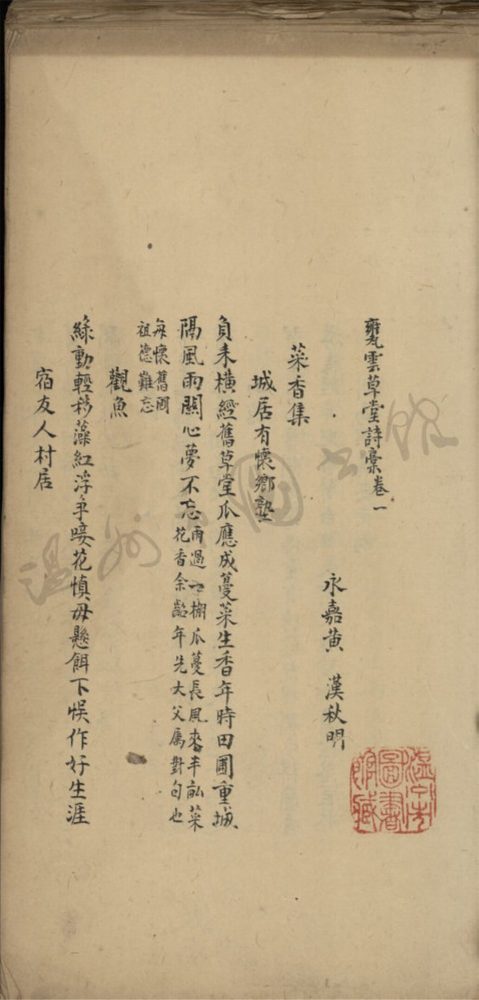 甕雲草堂詩稾卷一
永嘉黃 漢秋明
菜香集
城居有懷鄉塾
負耒橫經舊草堂瓜應成蔓菜生香年時田圃重城
隔風雨關心夢不忘
雨過一棚瓜蔓長風來半畝菜
花香余齠年先大父屬對句也
每懷舊聞
祖德難忘
觀魚
綠動輕移藻紅浮爭唼花慎毋懸餌下悞作好生涯
宿友人村居
溫州市圖書館藏